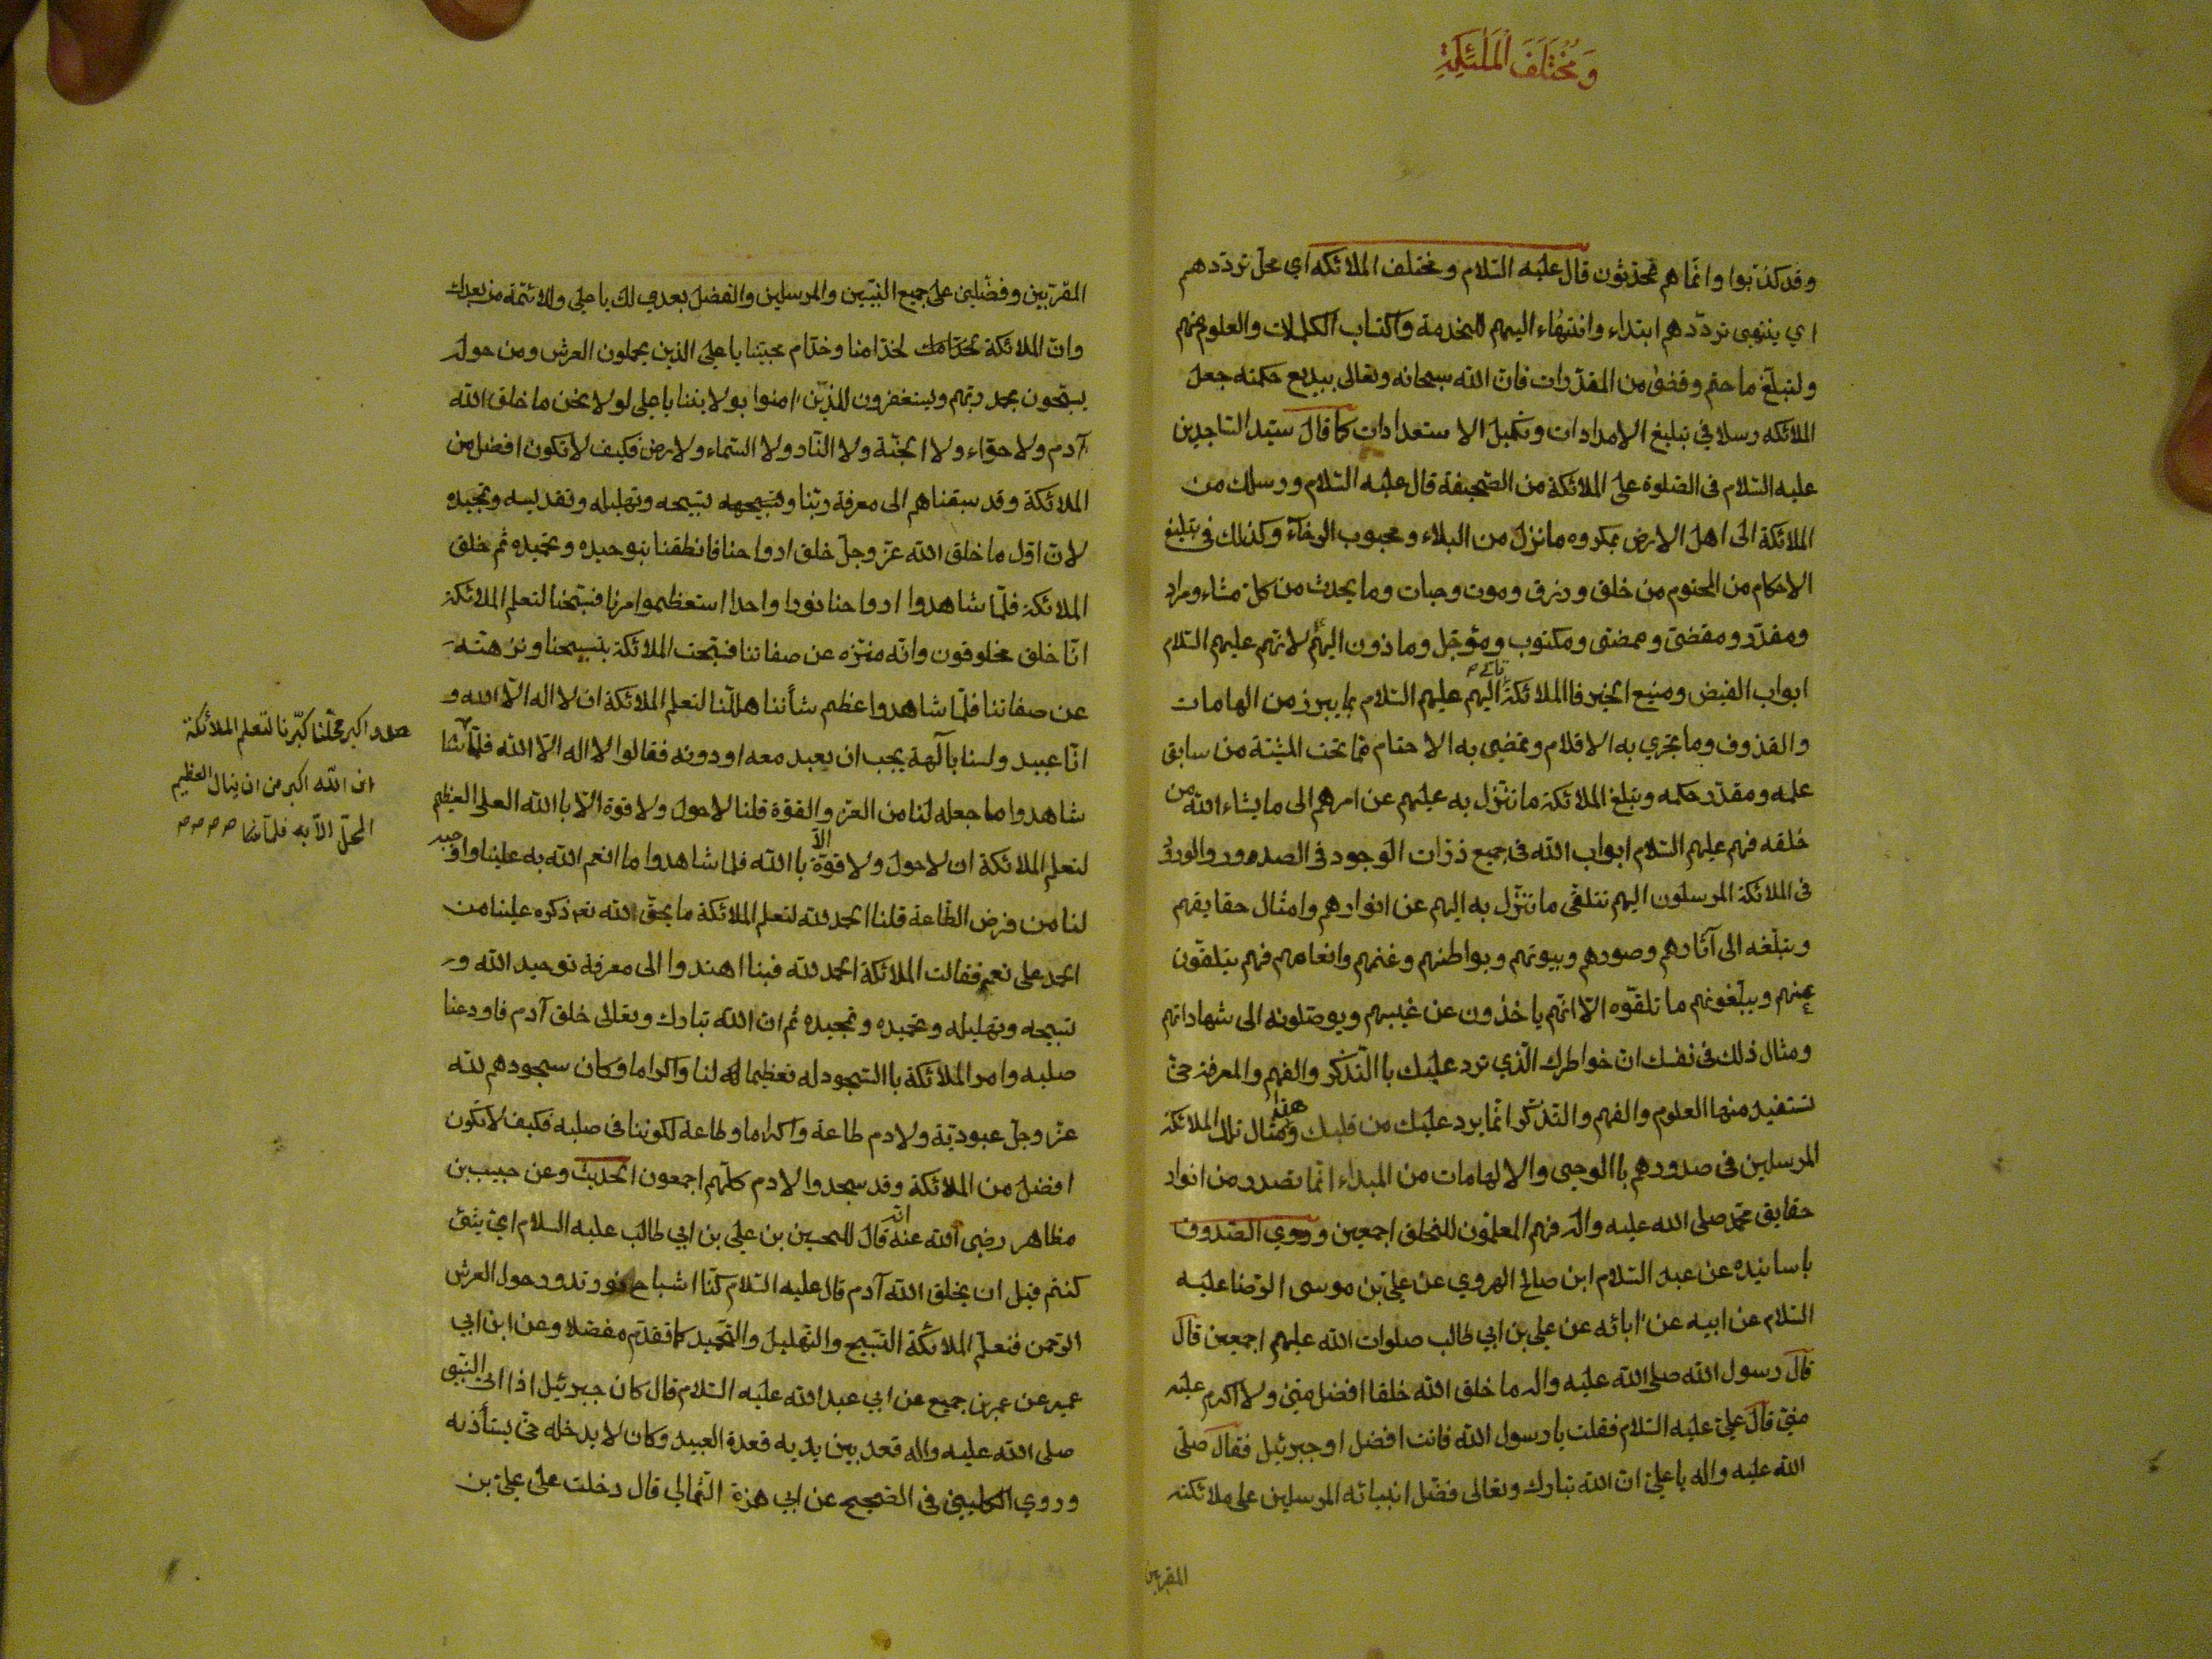 وَمُخْتَلَفَ الْمَلٰئِكَةِ
وقد كذبوا وانما هم محدّثون قال عليه السّلام ومختلف الملائكه اي محلّ تردّدهم
اي ينتهى تردّدهم ابتداء وانتهاء اليهم للخدمة واكتساب الكمالات والعلوم منهم
ولتبلّغ ما حتم وقضى من المقدّرات فانّ الله سبحانه وتعالى ببديع حكمته جعل
الملائكه رسلا في تبليغ الامدادات وتكميل الاستعدادات كما قال سيّد السّاجدين
عليه السّلام فى الصّلوة على الملائكة من الصّحيفة قال عليه السّلام ورسلك من
الملائكة الى اهل الارض بمكروه ما نزل من البلاء ومحبوب الرخآء وكذلك فى تبليغ
الاحكام من المحتوم من خلق ورزق وموت وحيات وما يحدث من كلّ مشاء ومراد
ومقدّر ومقضىّ وممضى ومكتوب ومؤجّل وماذون اليهم لانّهم عليهم السّلام
ابواب الفيض ومنبع الخير فاالملائكة تاتى اليهم عليهم السّلام بما يبرز من الهامات
والقذوف وما يجري به الاقلام وتمضى به الاحتام ممّا تحت المشيّة من سابق
علمه ومقدّر حكمه وتبلغ الملائكة ما تنزّل به عليهم عن امرهم الى ما يشاء الله من
خلقه فهم عليهم السّلام ابواب الله فى جميع ذرّات الوجود فى الصدور والورود
فى الملائكة المرسلون اليهم تتلقّى ما تنزّل به اليهم عن انوارهم وامثال حقايقهم
وتبلّغه الى آثارهم وصورهم وبيوتهم وبواطنهم وغنمهم وانعامهم فهم يتلقّون
عنهم ويبلّغونهم ما تلقّوه الّا انّهم ياخذون عن غيبهم ويوصلونه الى شهاداتهم
ومثال ذلك فى نفسك انّ خواطرك الّذي ترد عليك باالتّذكّر والفهم والمعرفة حتّى
تستفيد منها العلوم والفهم والتذكّر انّما يرد عليك من قلبك ومثال تلك الملائكة
المرسلين فى صدورهم باالوحى والالهامات من المبداء انّما تصدر من انوار
حقايق محمّد صلى الله عليه واله فهم المعلّمون للخلق اجمعين وروي الصّدوق
باسانيده عن عبد السّلام ابن صالح الهروي عن على بن موسى الرّضا عليه
السّلام عن ابيه عن ابائه عن علي بن ابي طالب صلوات الله عليهم اجمعين قال
قال رسول الله صلى الله عليه واله ما خلق الله خلقا افضل منّى ولا اكرم عليه
منّى قال علىّ عليه السّلام فقلت يا رسول الله فانت افضل او جبرئيل فقال صلّى
الله عليه واله يا علىّ انّ الله تبارك وتعالى فضّل انبيائه المرسلين على ملائكته
المقربين
المقرّبين وفضّلنى على جميع النّبيّين والمرسلين والفضل بعدي لك يا على وللائمّة من بعدك
وانّ الملائكة لخدّامنا وخدّام محبّينا يا علىّ الذين يحملون العرش ومن حوله
يسبّحون بحمد ربّهم ويستغفرون للذين امنوا بولايتنا يا على لولا نحن ما خلق الله
آدم ولا حوّاء ولا الجنّة ولا النّار ولا السّماء ولا رض فكيف لا نكون افضل من
الملائكة وقد سبقناهم الى معرفة ربّنا وتسبيحه وتهليله وتقديسه وتمجيده
لانّ اوّل ما خلق الله عزّ وجلّ خلق ارواحنا فانطقنا بتوحيده وتمجيده ثم خلق
الملائكة فلمّا شاهدوا ارواحنا نورا واحدا استعظموا امرنا فسبّحنا لتعلم الملائكة
انّا خلق مخلوقون وانّه منزّه عن صفاتنا فسبّحت الملائكة بتسبيحنا ونزهته
عن صفاتنا فلمّا شاهدوا عظم شأننا هللّنا لتعلم الملائكة ان لا اله الّا الله و
انّا عبيد ولسنا بآلهة يجب ان يعبد معه او دونه فقالوا لا اله الّا الله فلمّا شا
اكبر محلّنا كبّرنا لتعلم الملائكة
انّ الله اكبر من ان ينال العظيم
المحلّ الّا به فلمّا
شاهدوا ما جعله لنا من العزّ والقوّة قلنا لا حول ولا قوة الّا باالله العلى العظيم
لتعلم الملائكة ان لا حول ولا قوّة الّا باالله فلما شاهدوا ما انعم الله به علينا واوجبه
لنا من فرض الطّاعة قلنا الحمد لله لتعلم الملائكة ما يحقّ لله تعم ذكره علينا من
الحمد على نعمه فقالت الملائكة الحمد لله فبنا اهتدوا الى معرفة توحيد الله و
تسبيحه وتهليله وتحميده وتمجيده ثم ان الله تبارك وتعالى خلق آدم فاودعنا
صلبه وامر الملائكة باالسّجود له تعظيما لنا واكراما وكان سجودهم لله
عزّ وجلّ عبوديّة ولادم طاعة واكراما وطاعة لكوننا فى صلبه فكيف لا نكون
افضل من الملائكة وقد سجدوا لادم كلّهم اجمعون الحديث وعن حبيب بن
مظاهر رضى الله عنه انّه قال للحسين بن على بن ابي طالب عليه السلام اي شئ
كنتم قبل ان يخلق الله آدم قال عليه السّلام كنّا اشباح نور ندور حول العرش
الرّحمن فنعلّم الملائكة التّسبيح والتهليل والتحميد كما تقدّم مفصّلا وعن ابن ابي
عمير عن عمر بن جميع عن ابي عبد الله عليه السّلام قال كان جبرئيل اذا اتى النّبى
صلى الله عليه واله قعد بين يديه قعدة العبيد وكان لا يدخله حتّى يستأذنه
وروي الكلينى فى الصّحيح عن ابي حمزة الثّمالي قال دخلت على علىّ بن